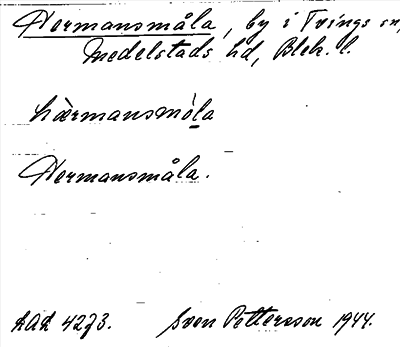 Hermansmåla, by i Tvings sn,
Medelstads hd, Blek. l.
hàrmansmò̱la
Hermansmåla.
LAL 4273.   Sven Pettersson 1944.